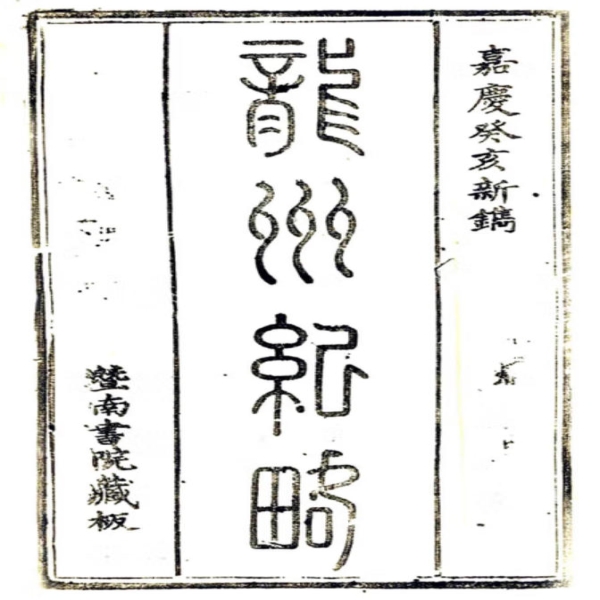 嘉慶癸亥新鐫
龍州紀略
暨南書院藏板